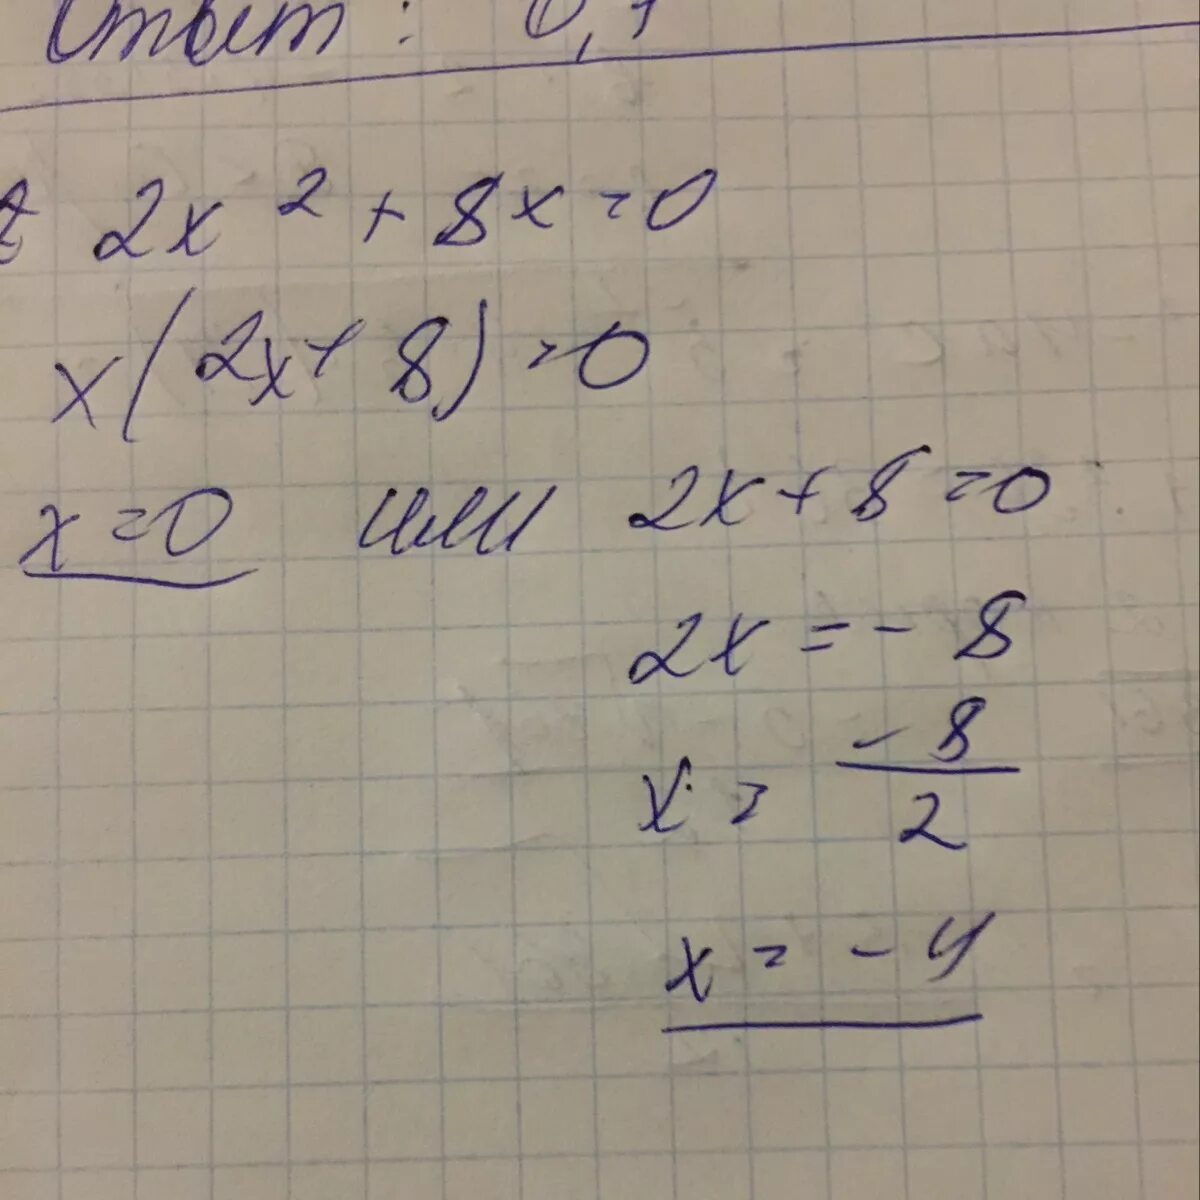 Ответ: 0,1
2x² + 8x = 0
x(2x + 8) = 0
x = 0 или 2x + 8 = 0
2x = - 8
x = -8/2
x = - 4